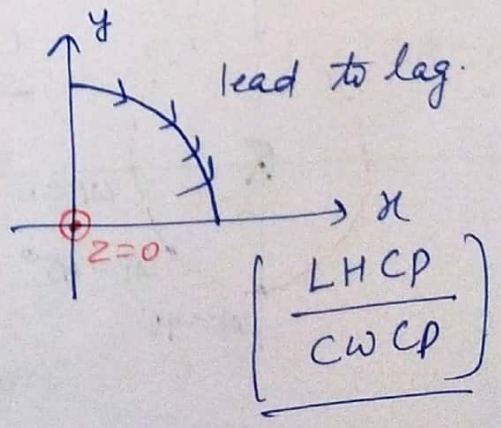 y
lead to lag.
x
z=0
LHCP
CWCP